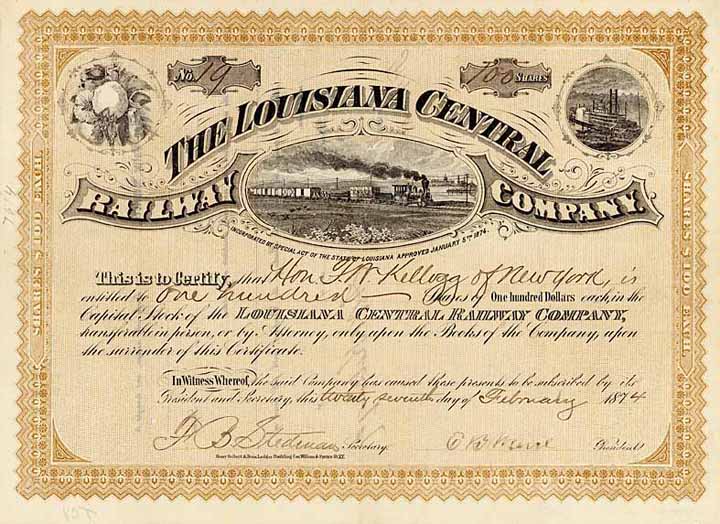 No. 19
100 SHARES
THE LOUISIANA CENTRAL
RAILWAY COMPANY.
INCORPORATED BY SPECIAL ACT OF THE STATE OF LOUISIANA APPROVED JANUARY 5TH 1874.
This is to Certify, that Hon. F. W. Kellogg of New York, is
entitled to One hundred Shares of One hundred Dollars each, in the
Capital Stock of the LOUISIANA CENTRAL RAILWAY COMPANY,
transferable in person, or by Attorney, only upon the Books of the Company, upon
the surrender of this Certificate.
In Witness Whereof, the said Company has caused these presents to be subscribed by its
President and Secretary, this twenty seventh day of February 1874
F. B. Stedman Secretary.
President
SHARES $100 EACH.
SHARES $100 EACH.